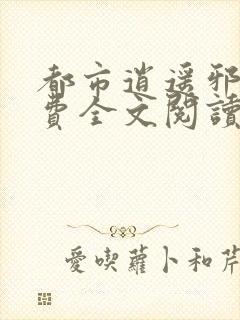 都市逍遥邪
費全文閱讀
愛喫蘿卜和芹